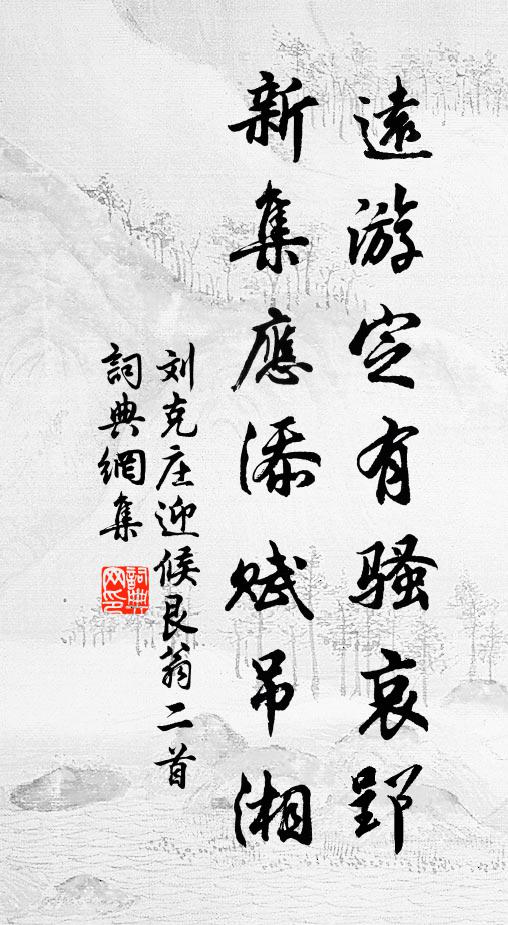 遠游定有騷哀郢
新集應添賦吊湘
刘克庄迎候艮翁二首
詞典網集
詞典網印